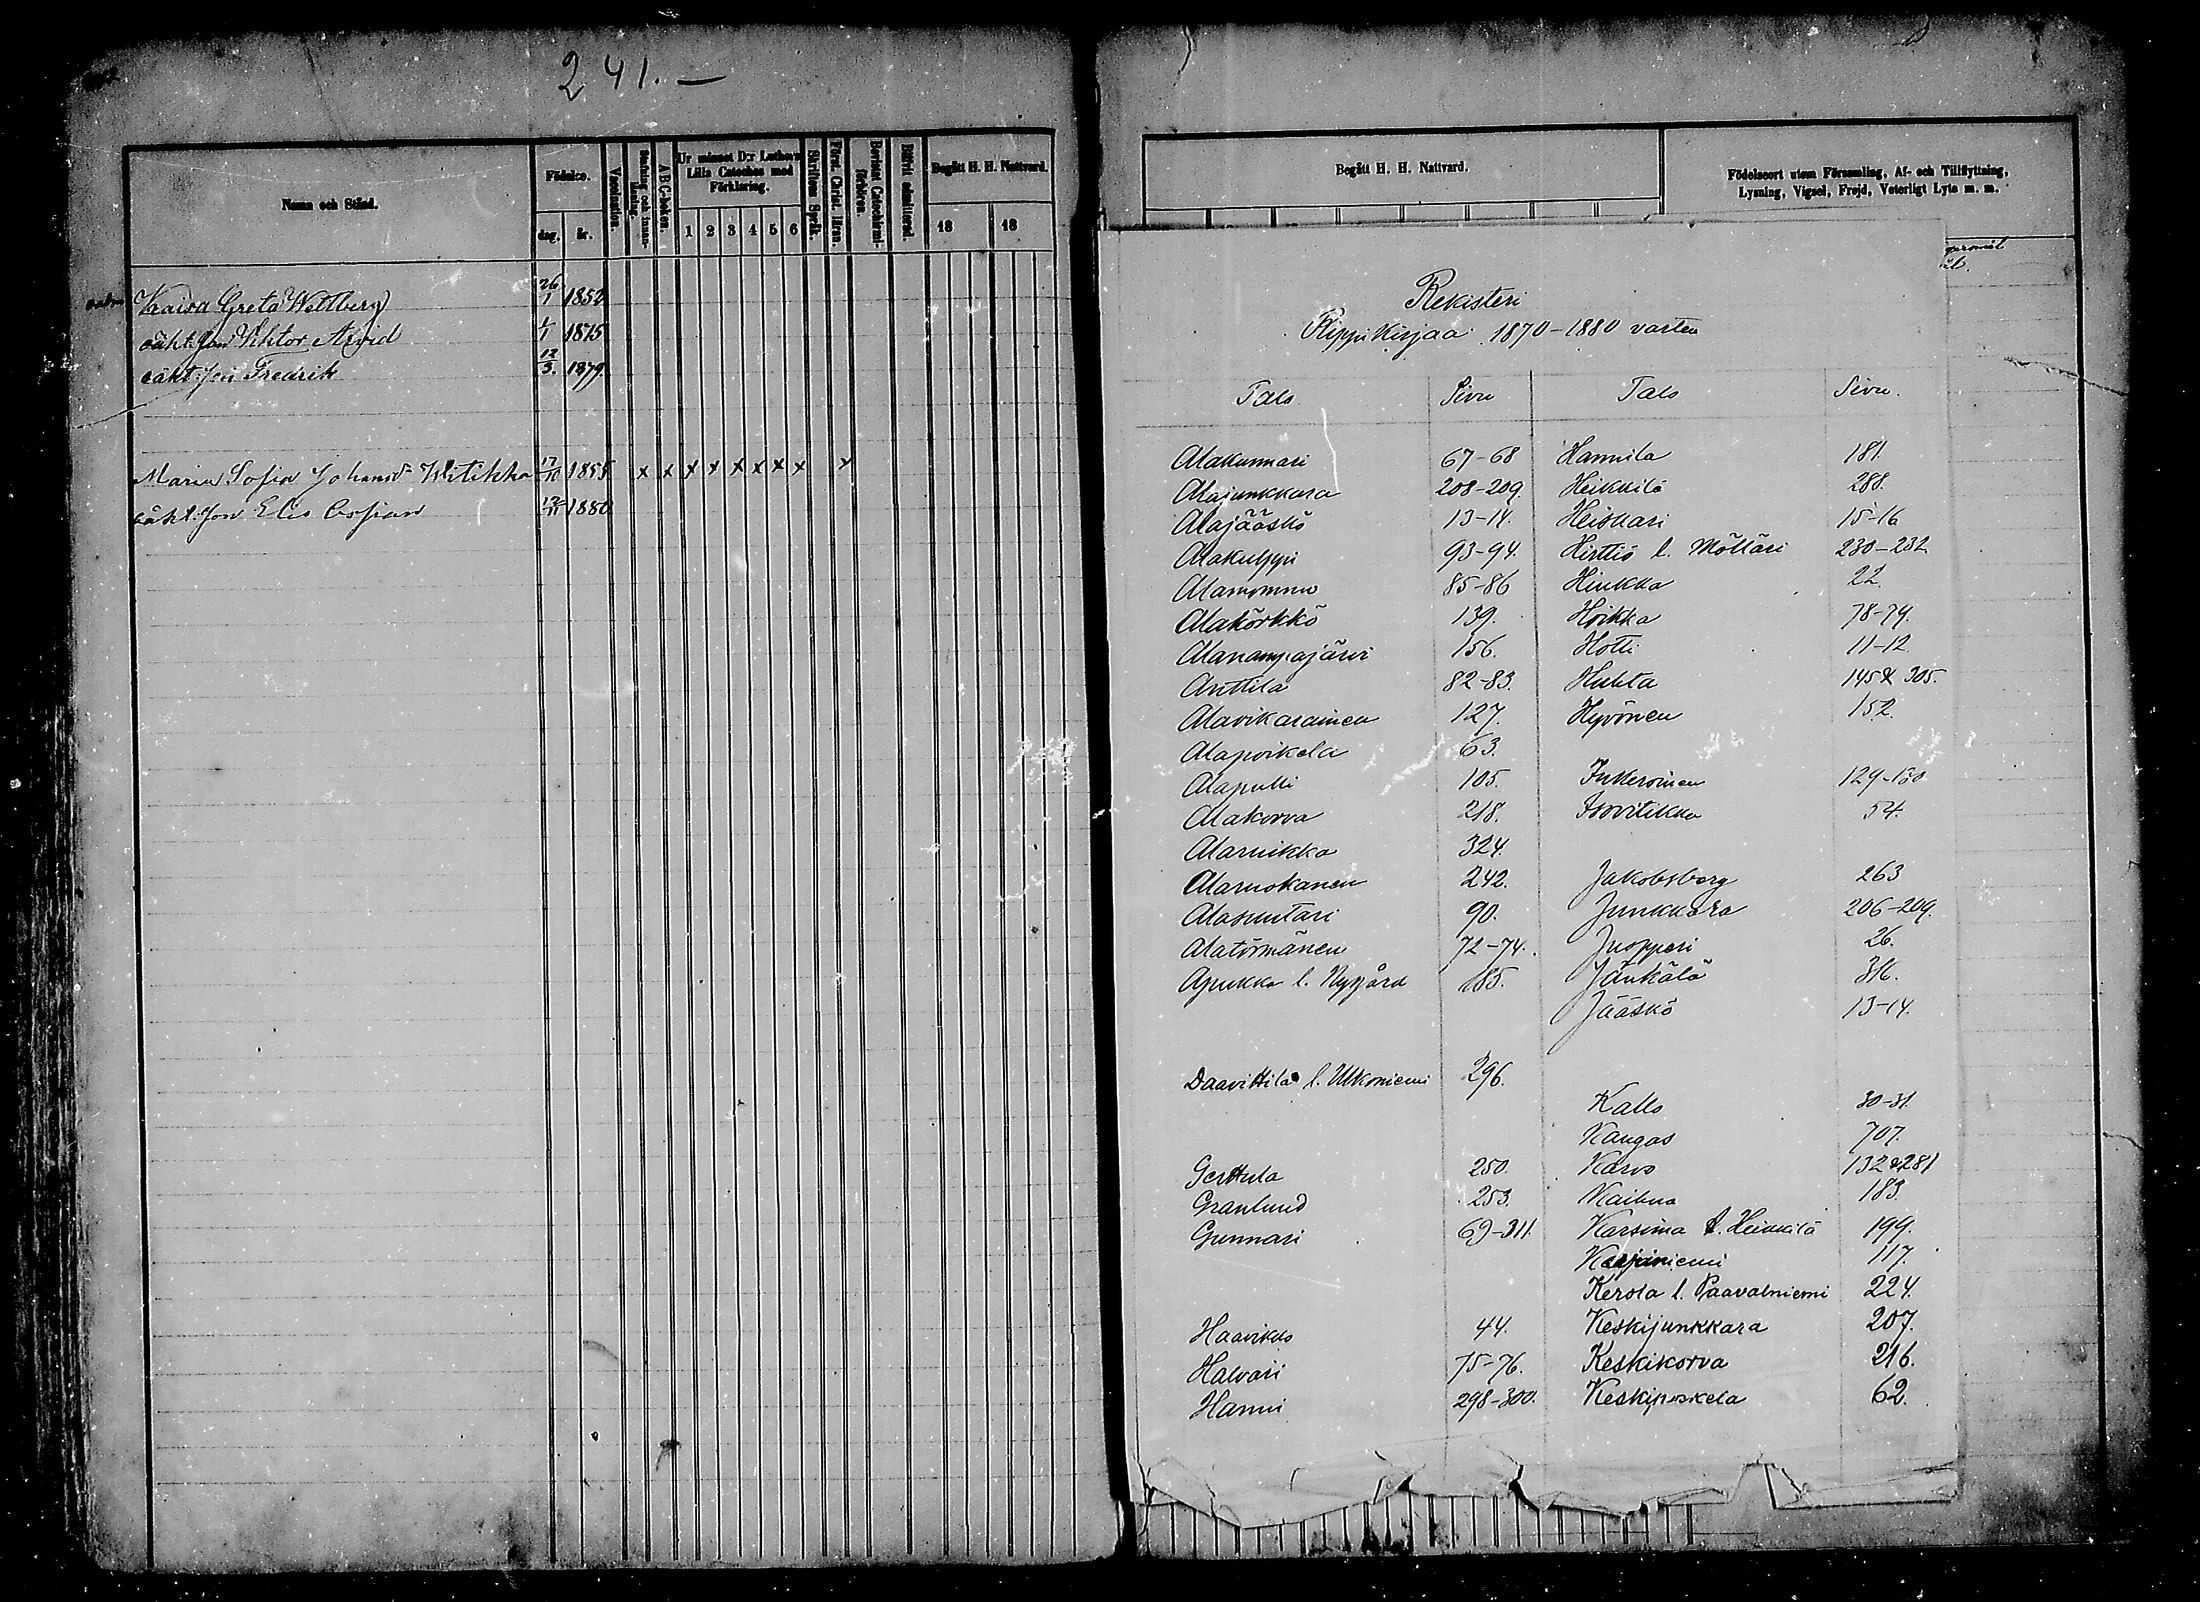 241. —
Namn och Stånd.
Födelse.
dag.
år.
Vaccination.
A B C-boken.
Ur minnet D:r Luthers Lilla Cateches med Förklaring.
1 2 3 4 5 6
Skriftens Språk.
Först. Christ. läran.
Bevistat Catechismi-förhören.
Blifvit admitterad.
Begått H. H. Nattvard.
18 18
Kaisa Greta Wettberg 26/1 1852
oäkt. Son Viktor Arvid 1/1 1875
oäkt. Son Fredrik 12/3. 1879.
Maria Sofia Johansd. Witikka 17/10 1855 x x x x x x x x x
oäkt. Son Elis Cassian 1880
Begått H. H. Nattvard.
Födelseort utom Församling, Af- och Tillflyttning, Lysning, Vigsel, Frejd, Veterligt Lyte m. m.
Rekisteri
Rippikirjaa 1870-1880 varten
Talo Sivu Talo Sivu.
Alakunnari 67-68 Hannila 181.
Alajunkkara 208-209. Heikkilä 288.
Alajääskö 13-14. Heiskari 15-16
Alakulppi 93-94. Hirttiö l. Mölläri 230-232
Alamommo 85-86 Hiukka 22.
Alakörkkö 139. Hoikka 78-79.
Alanampajärvi 156. Hotti 11-12.
Anttila 82-83. Huhta 145 & 305.
Alavikarainen 127. Hyvönen 152.
Alapoikela 63.
Alapulli 105. Inkeroinen 129-130
Alakorva 218. Isovitikka 54.
Alaruikka 324.
Alaruokanen 242. Jakobsberg 263
Alasuutari 90. Junkkara 206-209.
Alatörmänen 72-74. Juopperi 26.
Apukka l. Nygård 185. Jänkälä 316.
Jääskö 13-14.
Daavittila l. Ulkoniemi 296.
Kallo 30-31.
Kangas 707.
Gerttula 250. Karvo 132 & 281
Granlund 253. Kaihua 183.
Gunnari 69-311. Karsima l. Heikkilä 199.
Karjiniemi 117.
Kerola l. Paavalniemi 224.
Haavikko 44. Keskijunkkara 207.
Halvari 75-76. Keskikorva 216.
Hanni 298-300. Keskipoikela 62.